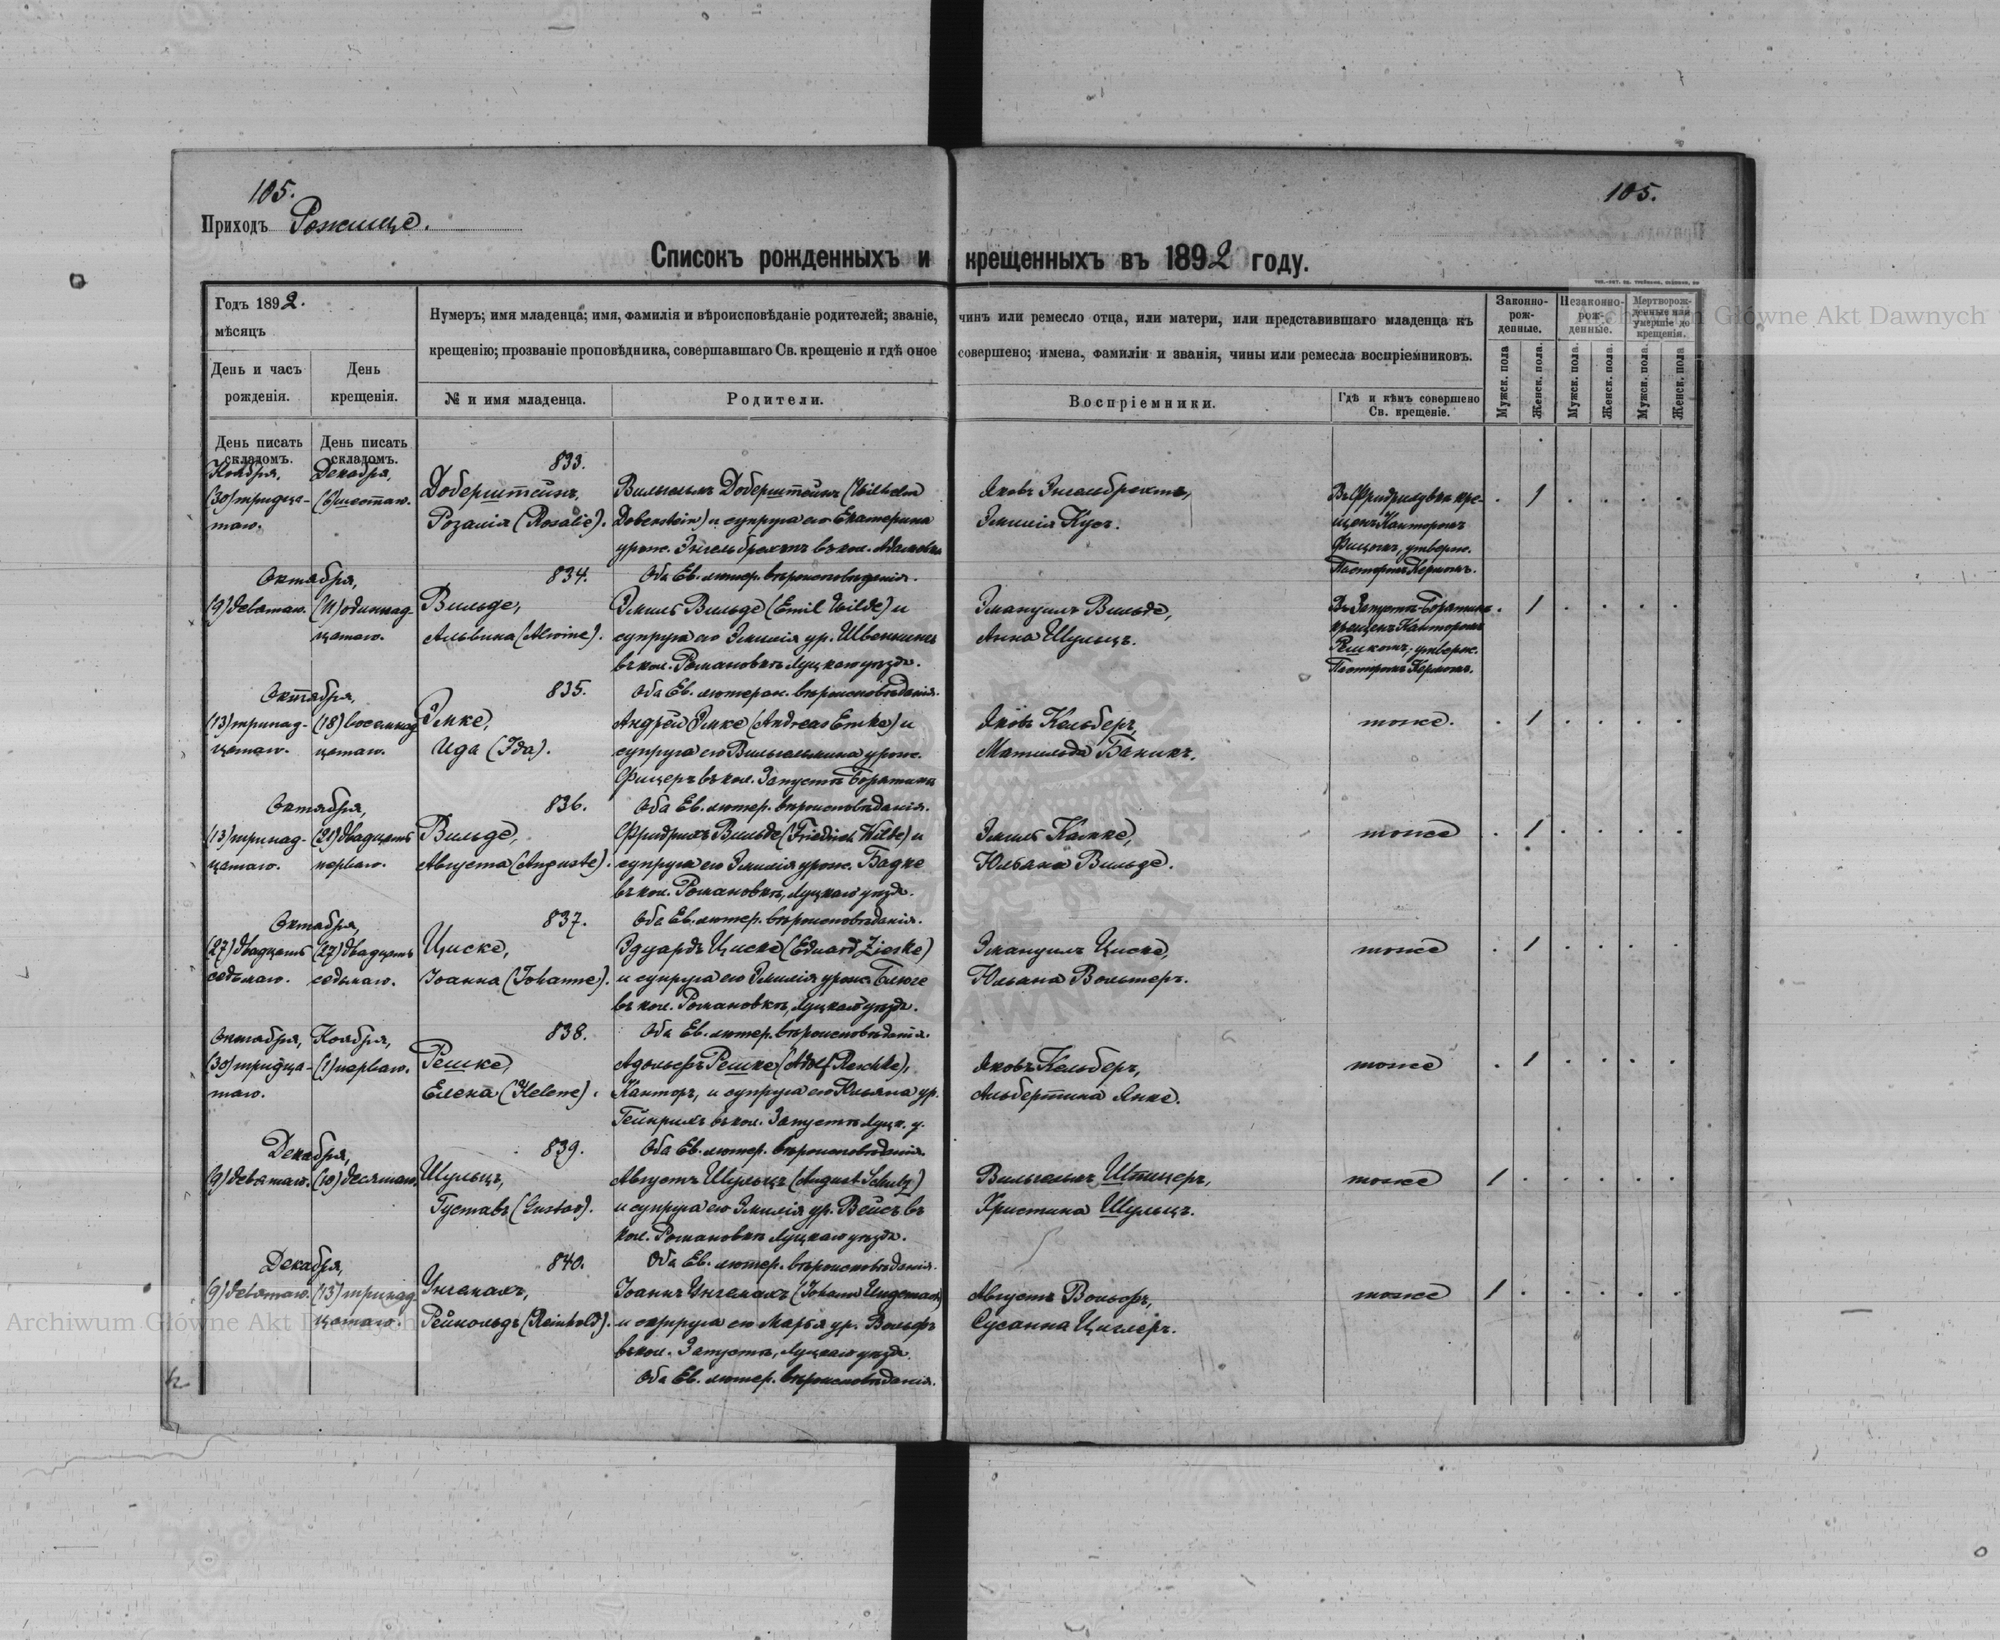 105.
105.
Приходъ Рожище.
Списокъ рожденныхъ и крещенныхъ въ 1892 году.
Годъ 1892.
мѣсяцъ
День и часъ рожденія.
День крещенія.
Нумеръ; имя младенца; имя, фамилія и вѣроисповѣданіе родителей; званіе, чинъ или ремесло отца, или матери, или представившаго младенца къ
крещенію; прозваніе проповѣдника, совершавшаго Св. крещеніе и гдѣ оное совершено; имена, фамиліи и званія, чины или ремесла воспріемниковъ.
№ и имя младенца.
Родители.
Воспріемники.
Гдѣ и кѣмъ совершено Св. крещеніе.
Законно-рож-денные.
Незаконно-рож-денные.
Мертворож-денные или умершіе до крещенія.
Мужск. пола
Женск. пола.
Мужск. пола.
Женск. пола.
Мужск. пола.
Женск. пола
День писать складомъ.
День писать складомъ.
833.
Ноября, Декабря,
(30) тридца- (6) шестаго. Доберштейнъ, Вильгельмъ Доберштейнъ (Wilhelm Яковъ Энгельбрехтъ, Въ Фридриховкѣ кре- 1
таго. Розалія (Rosalie). Doberstein) и супруга его Екатерина Эмилія Кусъ. щенъ Канторомъ
урож. Энгельбрехтъ въ кол. Адамовка утверж.
Оба Ев. лютер. вѣроисповѣданія. Пасторомъ Кермомъ.
834.
Октября,
(9) девятаго. (11) одиннад- Вильде, Эмиль Вильде (Emil Wilde) и Эмануилъ Вильде, Въ Запустъ-Боратинъ 1
цатаго. Альвина (Alwine). супруга его Эмилія ур. Анна Шульцъ. крещенъ Канторомъ
въ кол. Романовкѣ Луцкаго уѣзда. Решкомъ, утверж.
Оба Ев. лютеран. вѣроисповѣданія. Пасторомъ Кермомъ.
835.
Октября,
(13) тринад- (18) восемнад- Эмке, Андрей Эмке (Andreas Emke) и Яковъ Кельберъ, тоже. 1
цатаго. цатаго. Ида (Ida). супруга его Вильгельмина урож. Матильда Баникъ.
Фицеръ въ кол. Запустъ Боратинъ
Оба Ев. лютер. вѣроисповѣданія.
836.
Октября,
(13) тринад- (21) двадцать Вильде, Фридрихъ Вильде (Friedrich Wilde) и Эмиль тоже 1
цатаго. перваго. Августа (Auguste). супруга его Эмилія урож. Бадке Юльяна Вильде.
въ кол. Романовкѣ, Луцкаго уѣзда.
Оба Ев. лютер. вѣроисповѣданія.
837.
Октября,
(27) двадцать (27) двадцать Циске, Эдуардъ Циске (Eduard Zieske) Эмануилъ Циске, тоже 1
седьмаго. седьмаго. Іоанна (Johanne). и супруга его Эмилія урож. Блюге Юльяна Вольтеръ.
въ кол. Романовкѣ, Луцкаго уѣзда.
Оба Ев. лютер. вѣроисповѣданія.
838.
Октября, Ноября,
(30) тридца- (1) перваго. Решке, Адольфъ Решке (Adolf Reschke), Яковъ Кельберъ, тоже 1
таго. Елена (Helene). Канторъ, и супруга его Юльяна ур. Альбертина Янке.
Гейнрихъ въ кол. Запустъ Луцк. у.
Оба Ев. лютер. вѣроисповѣданія.
839.
Декабря,
(9) девятаго. (10) десятаго. Шульцъ, Августъ Шульцъ (August Schulz) Вильгельмъ Штицеръ, тоже 1
Густавъ (Gustav). и супруга его Эмилія ур. Вейсъ въ Христина Шульцъ.
кол. Романовкѣ Луцкаго уѣзда.
Оба Ев. лютер. вѣроисповѣданія.
840.
Декабря,
(9) девятаго. (13) тринад- Унгемахъ, Іоаннъ Унгемахъ (Johann Ungemach) Августъ Вольфъ, тоже 1
цатаго. Рейнольдъ (Reinhold). и супруга его Марья ур. Вольфъ Сусанна Циглеръ.
въ кол. Запустъ, Луцкаго уѣзда.
Оба Ев. лютер. вѣроисповѣданія.
Archiwum Główne Akt Dawnych
Archiwum Główne Akt Dawnych